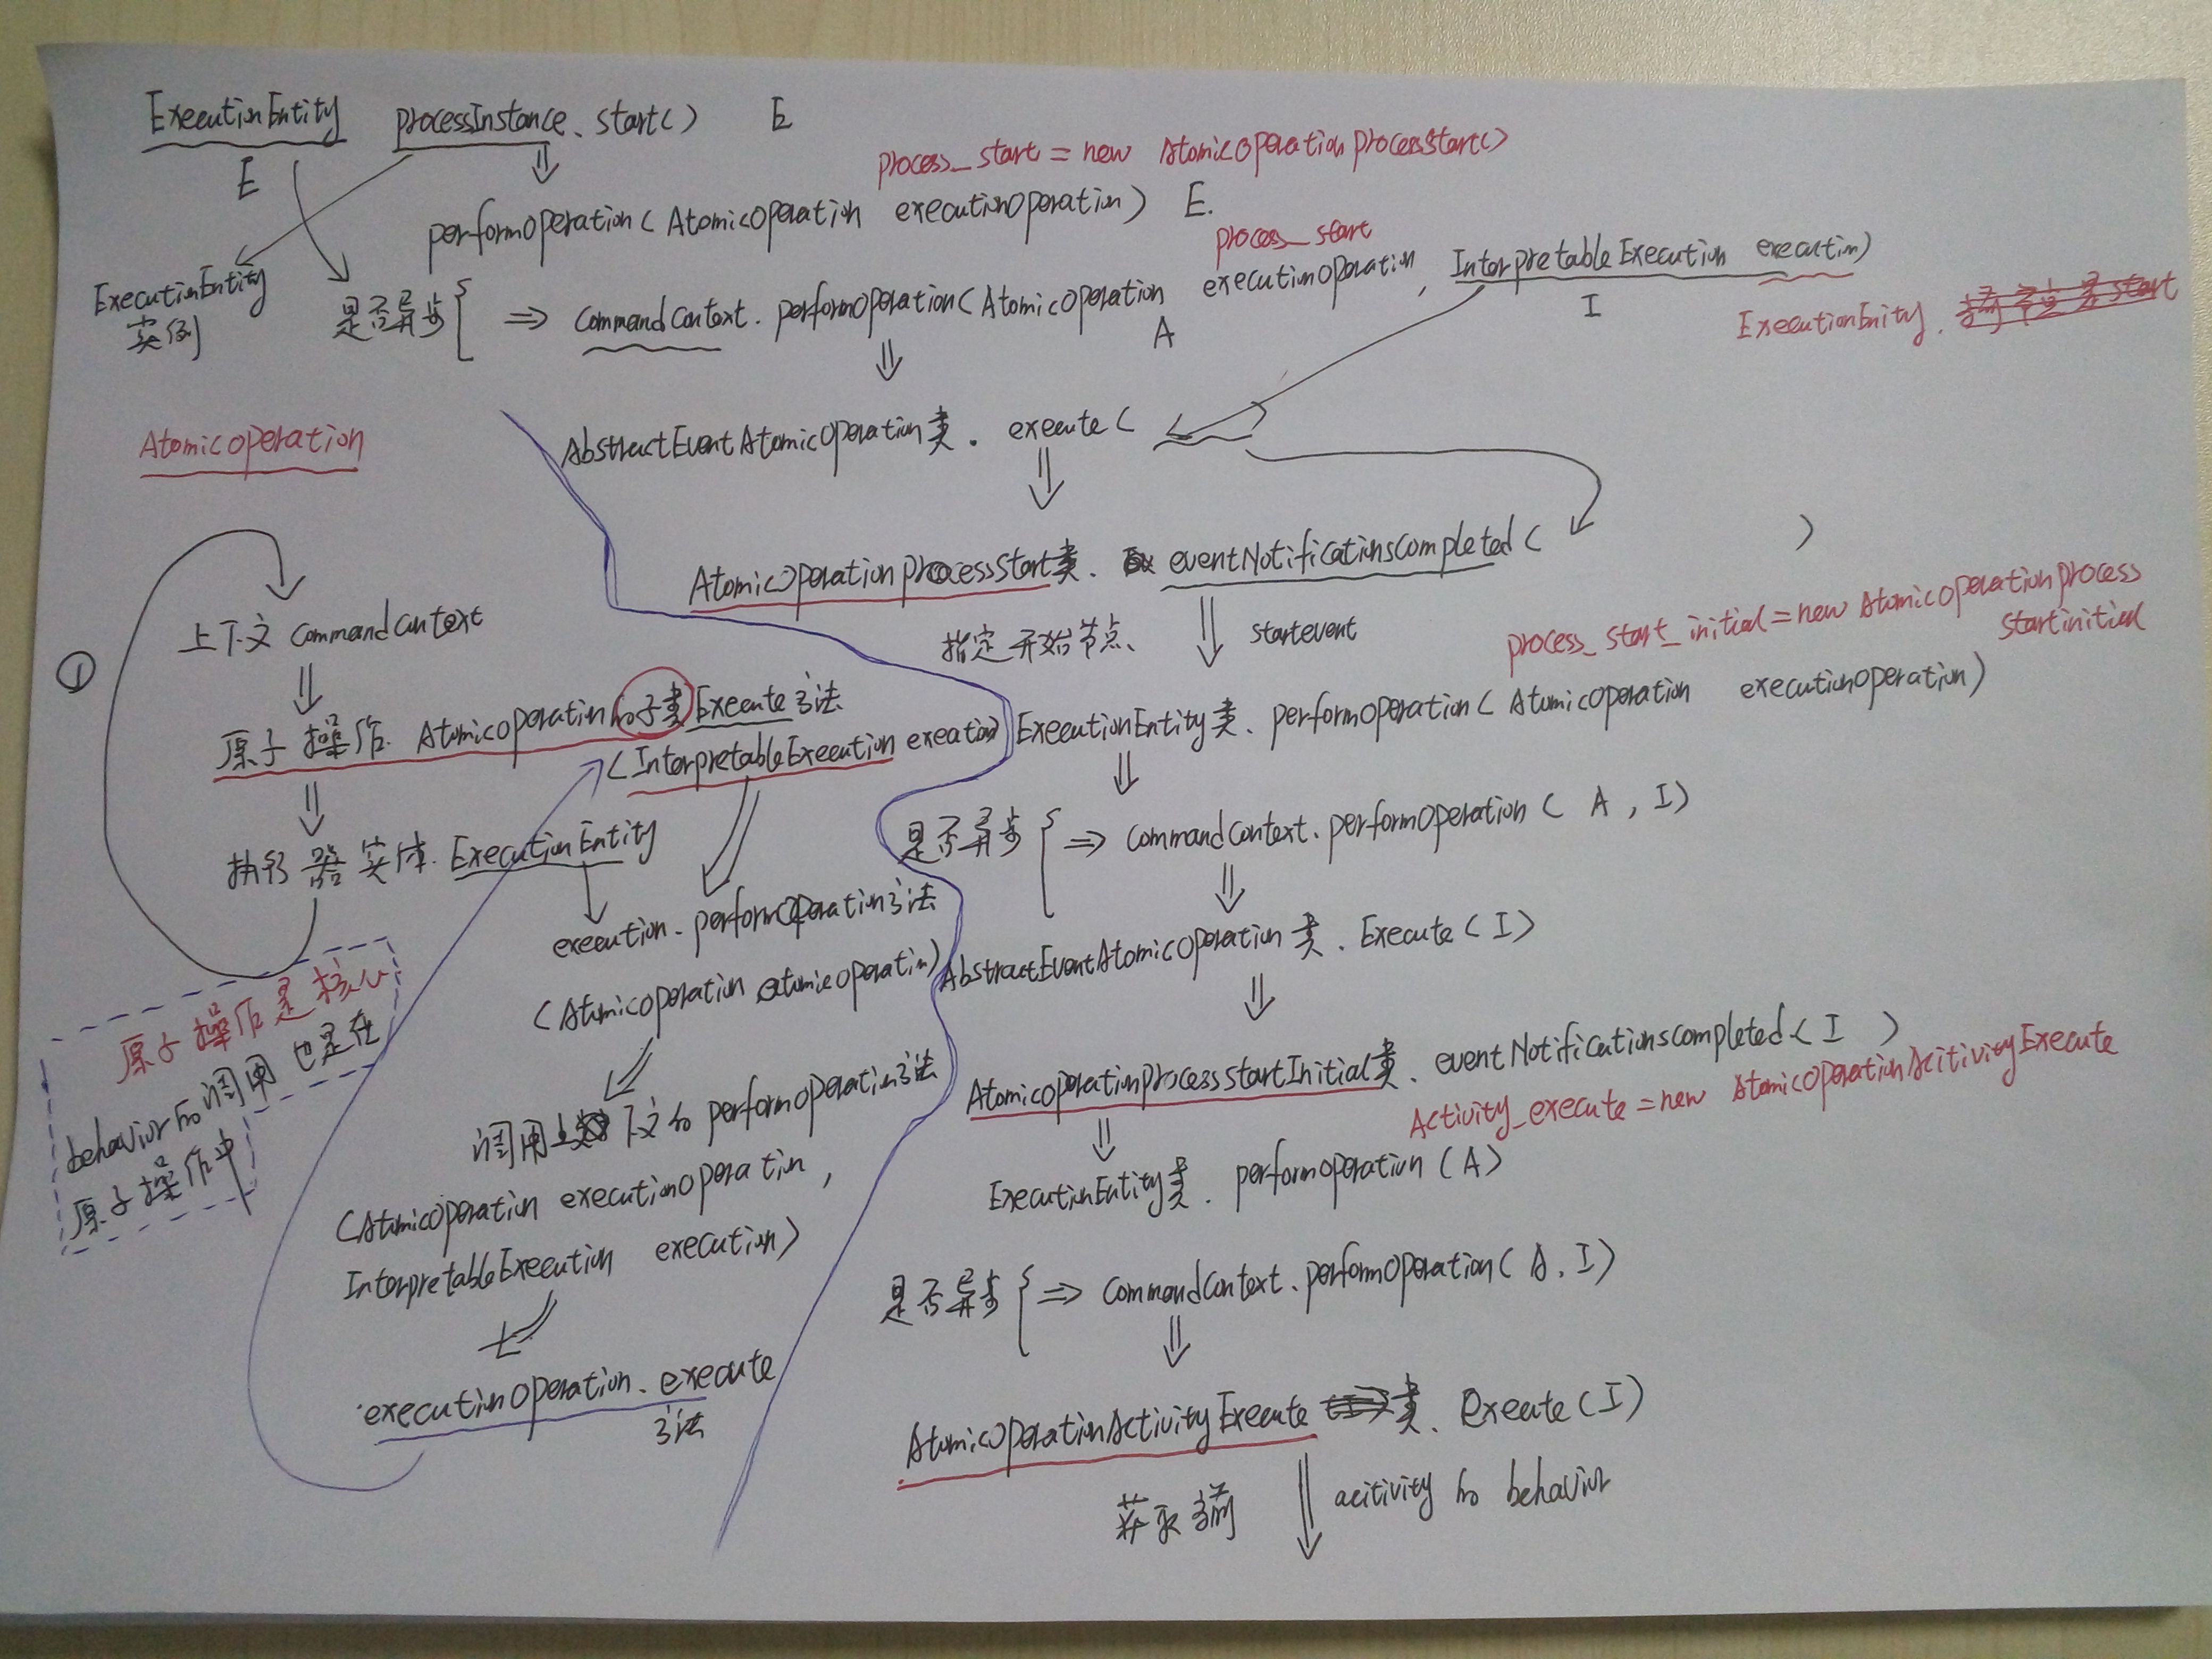 ExecutionEntity processInstance.start() E
E
process_start = new AtomicOperationProcessStart()
performOperation(AtomicOperation executionOperation) E.
process_start
ExecutionEntity
实例
是否异步 { ⇒ CommandContext.performOperation(AtomicOperation executionOperation, InterpretableExecution execution)
A
I
ExecutionEnity.
AbstractEventAtomicOperation类.execute( )
AtomicOperationProcessStart类. eventNotificationsCompleted( )
指定开始节点、 startevent
process_start_initial = new AtomicOperationProcess
startinitial
ExecutionEntity类.performOperation(AtomicOperation executionOperation)
是否异步 { ⇒ CommandContext.performOperation(A, I)
AbstractEventAtomicOperation类.Execute(I)
AtomicOperationProcessStartInitial类.eventNotificationsCompleted(I )
Activity_execute = new AtomicOperationAcitivityExecute
ExecutionEntity类.performOperation(A)
是否异步 { ⇒ CommandContext.performOperation(A, I)
AtomicOperationActivityExecute类.Execute(I)
获取 acitivity的behavior
AtomicOperation
①
上下文 CommandContext
原子操作 AtomicOperation的子类Execute方法
(InterpretableExecution execution)
执行器实体.ExecutionEntity
execution.performOperation方法
(AtomicOperation atomicOperation)
调用上下文的performOperation方法
(AtomicOperation executionOperation,
InterpretableExecution execution)
executionOperation.execute
方法
原子操作是核心
behavior的调用也是在
原子操作中